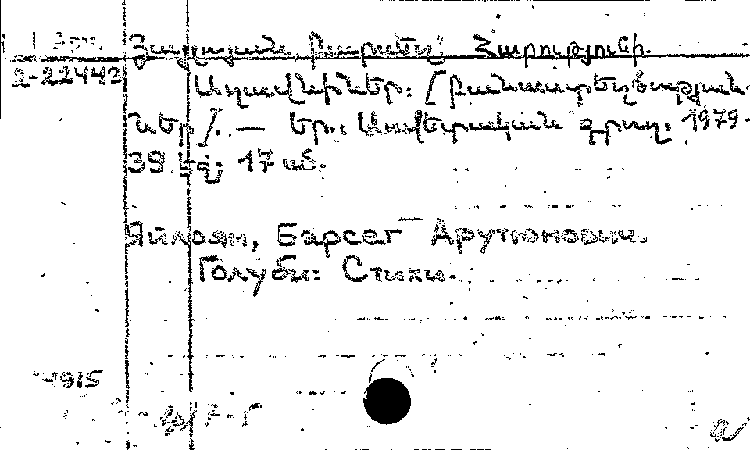 2-22442 Յայլոյան Բարսեղ Հարությունի.
Աղավնիներ: [Բանաստեղծություն-
ներ]. — Եր.: Սովետական գրող, 1979.
39 էջ; 17 սմ.
Яйлоян, Барсег Арутюнович.
Голуби: Стихи.
1915